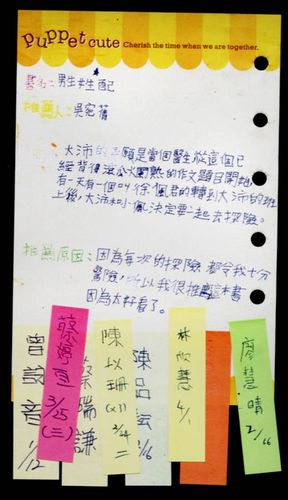 Puppet cute Cherish the time when we are together.
書名:男生女生配
推薦人:吳宛蒨
大沛的志願是當個醫生從這個已
經背得滾瓜爛熟的作文題目開始
有一天有一個叫徐佩君的轉到大沛的班
上後,大沛和小佩決定要一起去探險。
推薦原因:因為每次的探險都令我十分
驚險,所以我很推薦這本書
因為太好看了。
3/25
(二)
1/12
瑞謙
陳以珊
(火)
3/4
二
陳品妘
2/16
林欣慧
4/1
廖慧晴
2/26